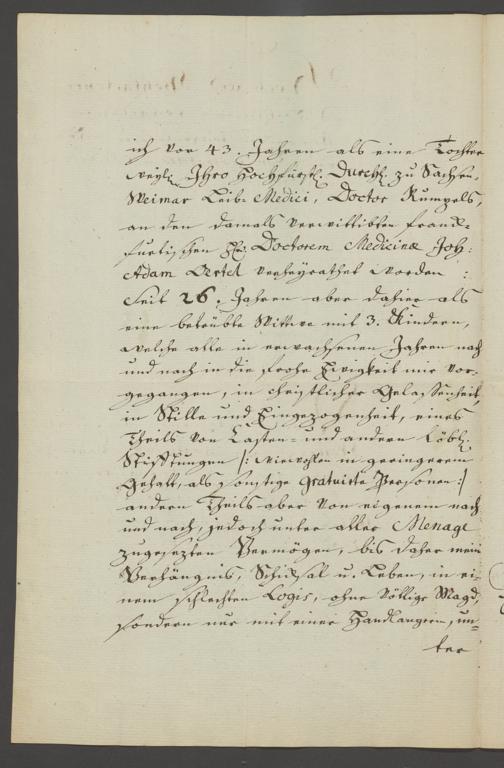 ich vor 43. Jahren als eine Tochter
weyl. Ihro Hochfürstl. Durchl. zu Sachsen-
Weimar Leib-Medici, Doctor Rumpels,
an den damals verwittibten Franck-
furtischen Hr. Doctorem Medicinæ Joh:
Adam Ertel verheyrathet worden:
Seit 26. Jahren aber dahier als
eine betrübte Wittwe mit 3. Kindern,
welche alle in erwachsenen Jahren nach
und nach in die frohe Ewigkeit mir vor-
gegangen, in christlicher Gelassenheit,
in Stille und Eingezogenheit, eines
Theils von Casten- und andern Löbl.
Stifftungen /: wiewohlen in geringerem
Gehalt, als sonstige gratuirte Personen :/
andern Theils aber von eigenem nach
und nach, jedoch unter aller Menage
zugesezten Vermögen, bis daher mein
Verhängnis, Schicksal u. Leben, in ei-
nem schlechten Logis, ohne völlige Magd,
sondern nur mit einer Handlangerin, un-
ter